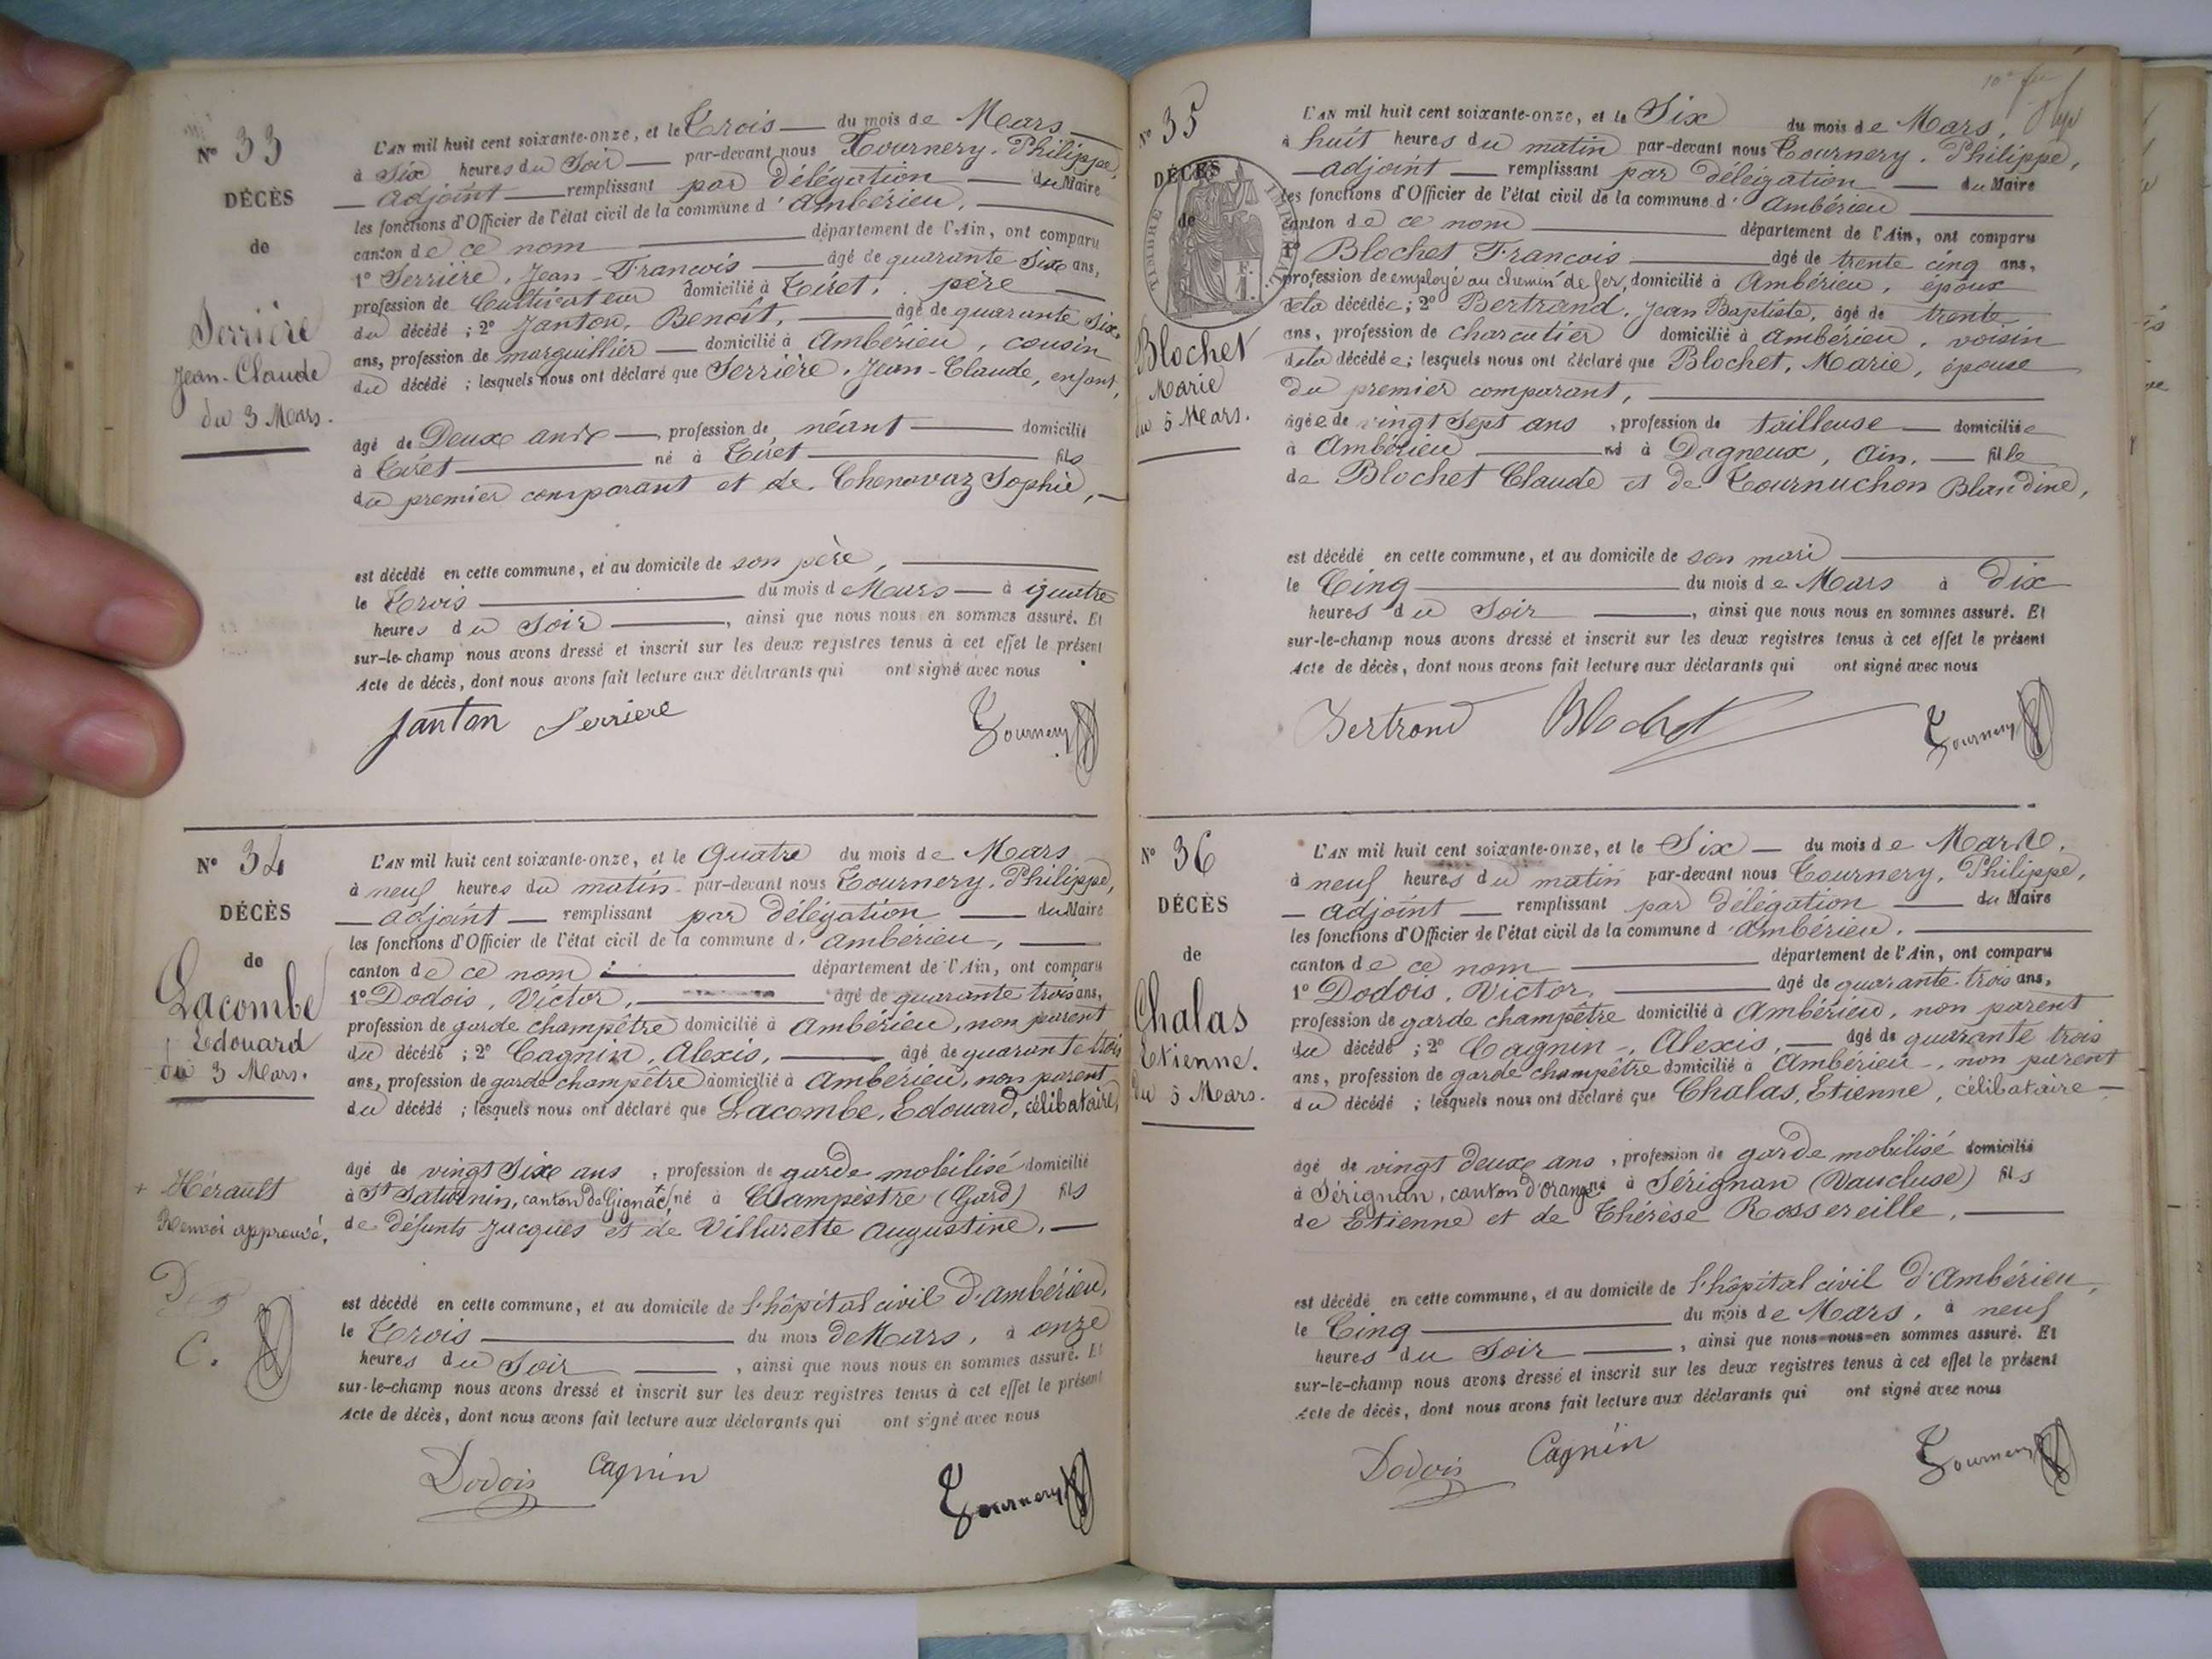 N° 33
DÉCÈS
de
Serrière
Jean-Claude
du 3 Mars.
L'AN mil huit cent soixante-onze, et le Trois du mois de Mars
à Six heures du Soir par-devant nous Tournery, Philippe,
adjoint remplissant par délégation du Maire
les fonctions d'Officier de l'état civil de la commune d'Ambérieu,
canton de ce nom département de l'Ain, ont comparu
1° Serrière, Jean-François âgé de quarante Six ans,
profession de Cultivateur domicilié à Tiret, père
du décédé ; 2° Janton, Benoît, âgé de quarante Six
ans, profession de marguillier domicilié à Ambérieu, cousin
du décédé ; lesquels nous ont déclaré que Serrière, Jean-Claude, enfant,
âgé de Deux ans profession de néant domicilié
à Tiret né à Tiret fils
du premier comparant et de Chenavaz Sophie,
est décédé en cette commune, et au domicile de son père,
le Trois du mois de Mars à quatre
heures du Soir, ainsi que nous nous en sommes assuré. Et
sur-le-champ nous avons dressé et inscrit sur les deux registres tenus à cet effet le présent
Acte de décès, dont nous avons fait lecture aux déclarants qui ont signé avec nous
Janton Serriere Tournery
N° 34
DÉCÈS
de
Lacombe
Edouard
du 3 Mars.
L'AN mil huit cent soixante-onze, et le Quatre du mois de Mars
à neuf heures du matin par-devant nous Tournery, Philippe,
adjoint remplissant par délégation du Maire
les fonctions d'Officier de l'état civil de la commune d'Ambérieu,
canton de ce nom département de l'Ain, ont comparu
1° Dodois, Victor, âgé de quarante trois ans,
profession de garde champêtre domicilié à Ambérieu, non parent
du décédé ; 2° Cagnin, Alexis, âgé de quarante trois
ans, profession de garde champêtre domicilié à Ambérieu, non parent
du décédé ; lesquels nous ont déclaré que Lacombe, Edouard, célibataire,
âgé de vingt Six ans, profession de garde mobilisé domicilié
à St Saturnin, canton de Gignac,+ né à Campestre (Gard) fils
de défunts Jacques et de Villarette Augustine,
+ Hérault
Renvoi approuvé.
D
C.
est décédé en cette commune, et au domicile de l'hôpital civil d'Ambérieu,
le Trois du mois de Mars, à onze
heures du Soir, ainsi que nous nous en sommes assuré. Et
sur-le-champ nous avons dressé et inscrit sur les deux registres tenus à cet effet le présent
Acte de décès, dont nous avons fait lecture aux déclarants qui ont signé avec nous
Dodois Cagnin Tournery
N° 35
DÉCÈS
de
TIMBRE IMPÉRIAL
Blochet
Marie
du 5 Mars.
L'AN mil huit cent soixante-onze, et le Six du mois de Mars,
à huit heures du matin par-devant nous Tournery, Philippe,
adjoint remplissant par délégation du Maire
les fonctions d'Officier de l'état civil de la commune d'Ambérieu
canton de ce nom département de l'Ain, ont comparu
1° Blochet, François âgé de trente cinq ans,
profession de employé au chemin de fer, domicilié à Ambérieu, époux
de la décédée ; 2° Bertrand, Jean Baptiste, âgé de trente
ans, profession de charcutier domicilié à Ambérieu, voisin
de la décédée ; lesquels nous ont déclaré que Blochet, Marie, épouse
du premier comparant,
âgée de vingt Sept ans, profession de tailleuse domiciliée
à Ambérieu né à Dagneux, Ain, fille
de Blochet Claude et de Tournuchon Blandine,
est décédé en cette commune, et au domicile de son mari
le Cinq du mois de Mars à Dix
heures du Soir, ainsi que nous nous en sommes assuré. Et
sur-le-champ nous avons dressé et inscrit sur les deux registres tenus à cet effet le présent
Acte de décès, dont nous avons fait lecture aux déclarants qui ont signé avec nous
Bertrand Blochet Tournery
N° 36
DÉCÈS
de
Chalas
Etienne.
du 5 Mars.
L'AN mil huit cent soixante-onze, et le Six du mois de Mars,
à neuf heures du matin par-devant nous Tournery, Philippe,
adjoint remplissant par délégation du Maire
les fonctions d'Officier de l'état civil de la commune d'Ambérieu,
canton de ce nom département de l'Ain, ont comparu
1° Dodois, Victor, âgé de quarante-trois ans,
profession de garde champêtre domicilié à Ambérieu, non parent
du décédé ; 2° Cagnin, Alexis, âgé de quarante trois
ans, profession de garde champêtre domicilié à Ambérieu, non parent
du décédé ; lesquels nous ont déclaré que Chalas, Etienne, célibataire
âgé de vingt deux ans, profession de garde mobilisé domicilié
à Sérignan, canton d'Orange né à Sérignan (Vaucluse) fils
de Etienne et de Thérèse Rossereille,
est décédé en cette commune, et au domicile de l'hôpital civil d'Ambérieu,
le Cinq du mois de Mars, à neuf
heures du Soir, ainsi que nous nous en sommes assuré. Et
sur-le-champ nous avons dressé et inscrit sur les deux registres tenus à cet effet le présent
Acte de décès, dont nous avons fait lecture aux déclarants qui ont signé avec nous
Dodois Cagnin Tournery